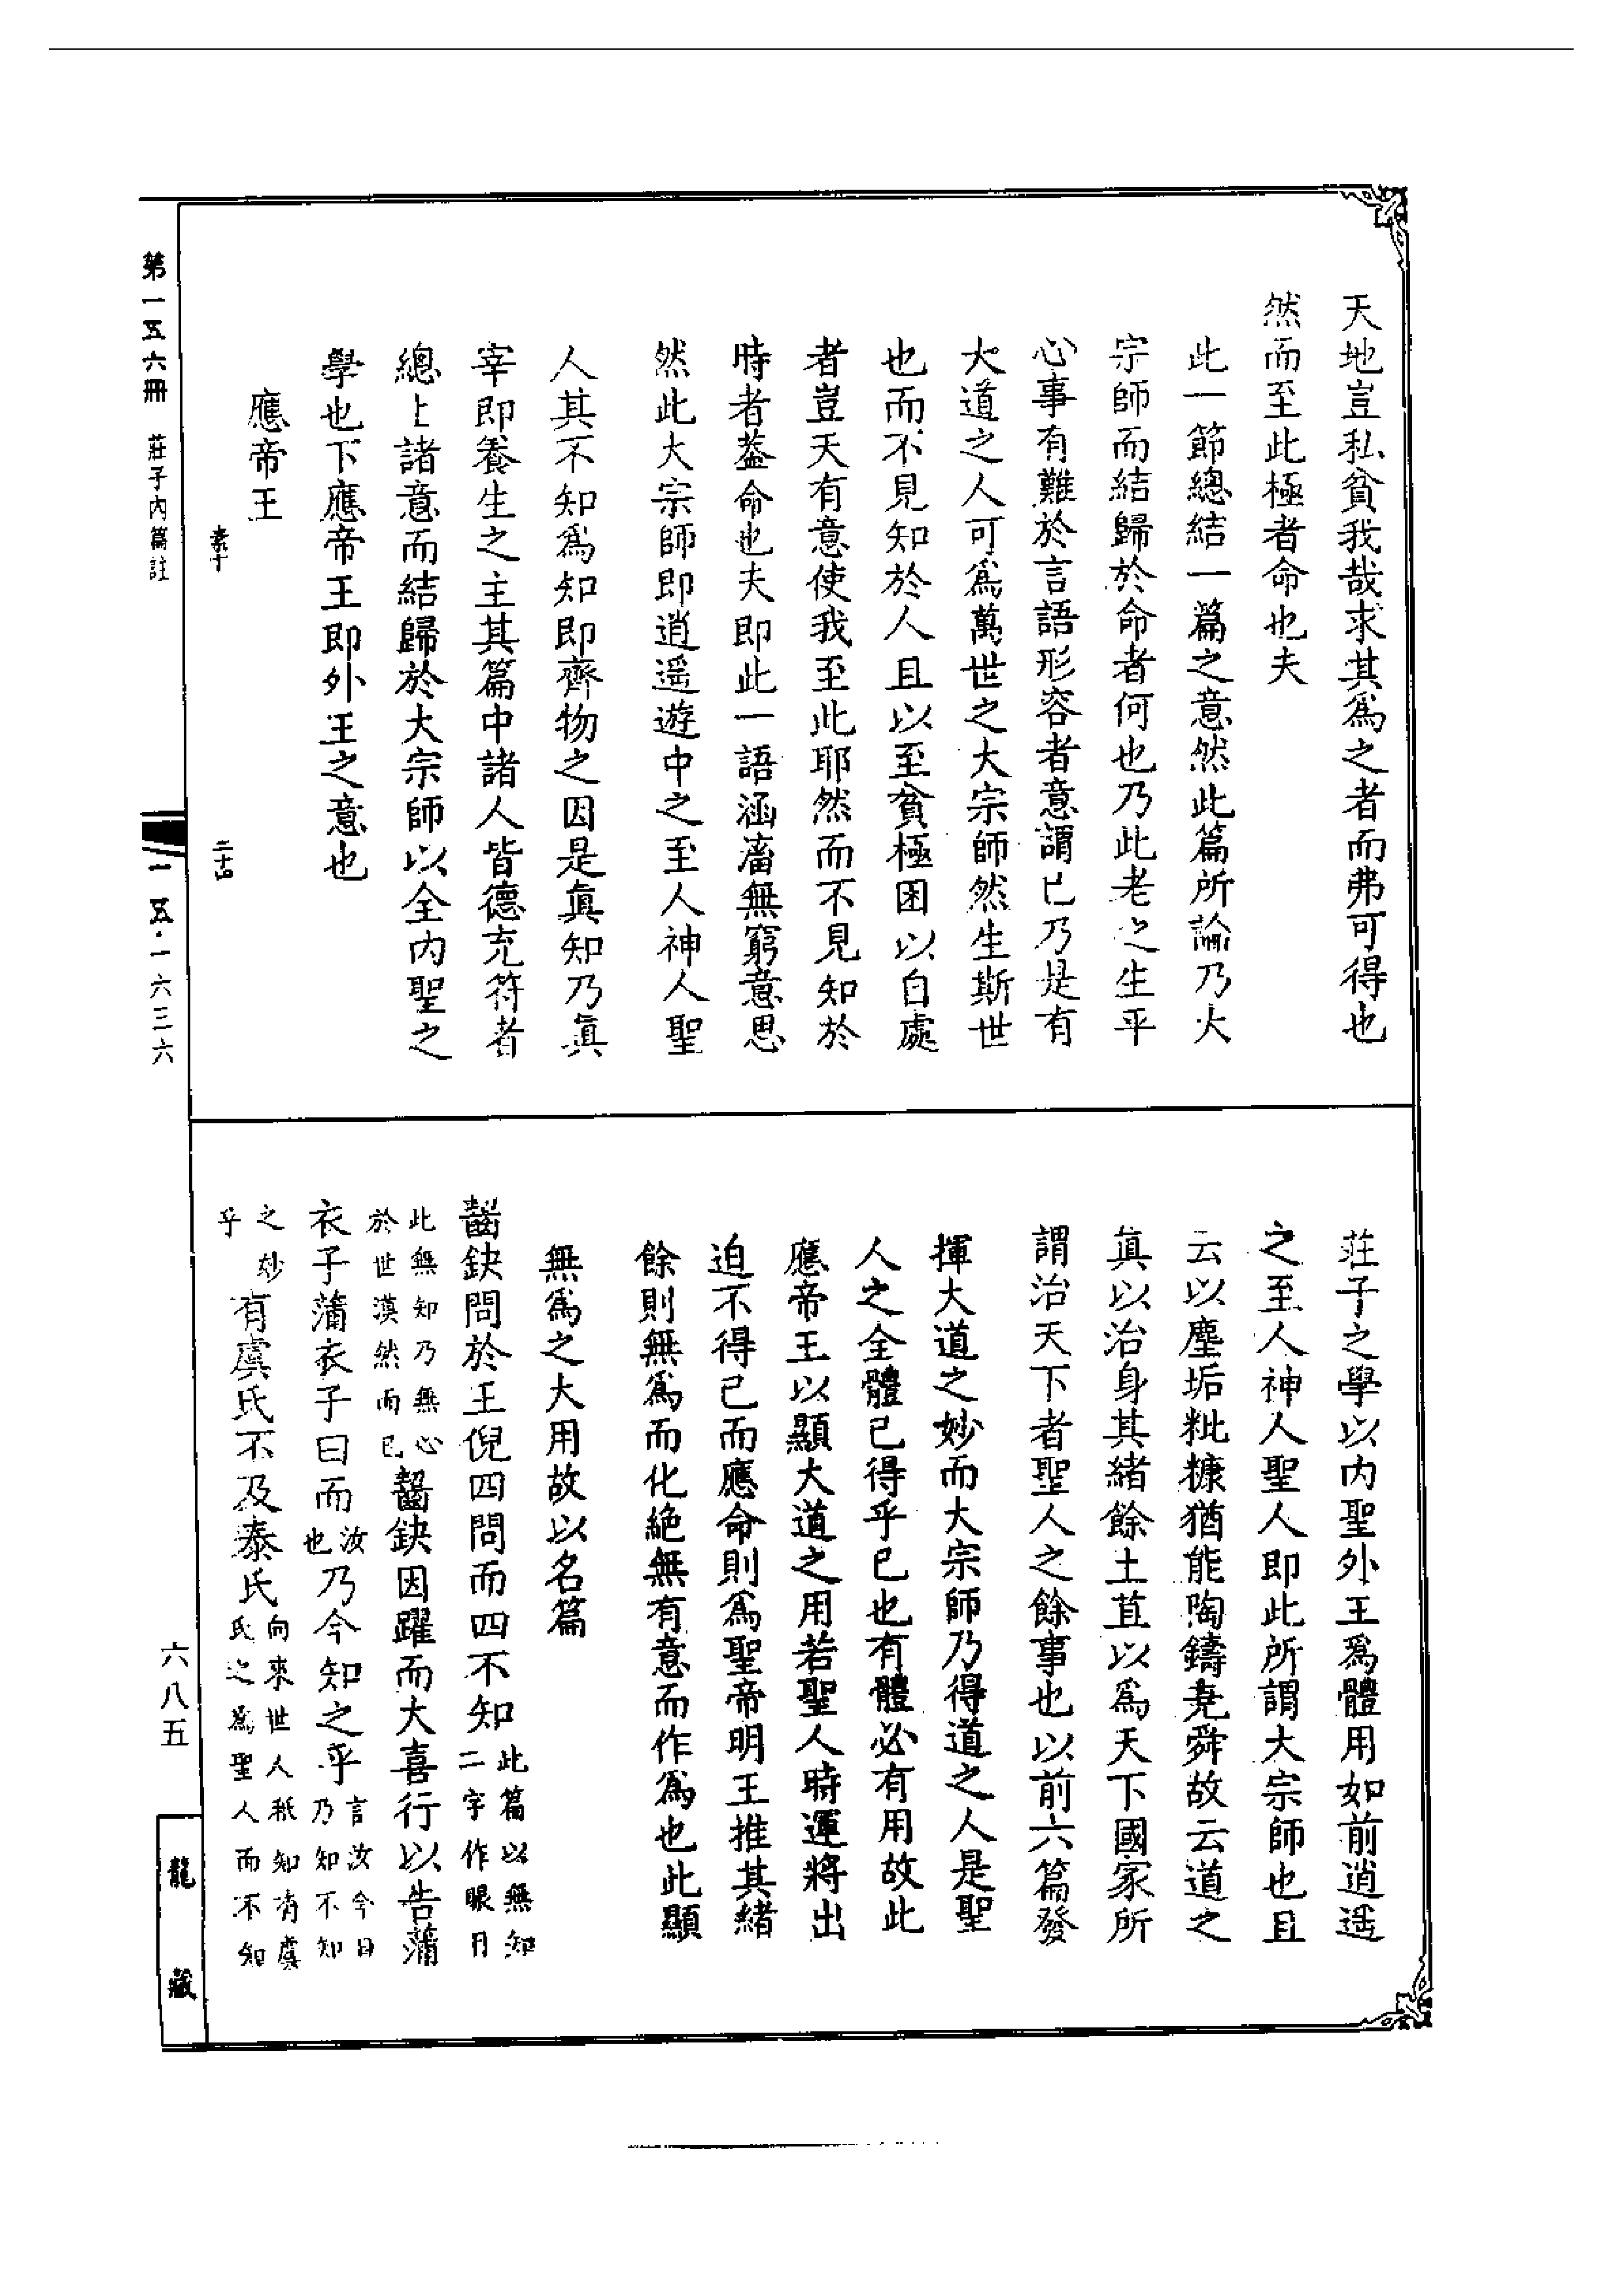 天地豈私貧我哉求其為之者而弗可得也
然而至此極者命也夫
此一節總結一篇之意然此篇所論乃大
宗師而結歸於命者何也乃此老之生平
心事有難於言語形容者意謂已乃是有
大道之人可為萬世之大宗師然生斯世
也而不見知於人且以至貧極困以自處
者豈天有意使我至此耶然而不見知於
時者葢命也夫即此一語涵滀無窮意思
然此大宗師即逍遥遊中之至人神人聖
人其不知為知即齊物之因是真知乃真
宰即養生之主其篇中諸人皆德充符者
總上諸意而結歸於大宗師以全內聖之
學也下應帝王即外王之意也
應帝王
素十 二十四
莊子之學以內聖外王為體用如前逍遥
之至人神人聖人即此所謂大宗師也且
云以塵垢粃糠猶能陶鑄堯舜故云道之
真以治身其緒餘土苴以為天下國家所
謂治天下者聖人之餘事也以前六篇發
揮大道之妙而大宗師乃得道之人是聖
人之全體已得乎已也有體必有用故此
應帝王以顯大道之用若聖人時運將出
迫不得已而應命則為聖帝明王推其緒
餘則無為而化絕無有意而作為也此顯
無為之大用故以名篇
齧缺問於王倪四問而四不知此篇以無知二字作眼目
此無知乃無心於世漠然而已齧缺因躍而大喜行以告蒲
衣子蒲衣子曰而汝也乃今知之乎言汝今日乃知不知
之妙乎有虞氏不及泰氏向來世人秪知有虞氏之為聖人而不知
第一五六冊 莊子內篇註
一五·一六三六
六八五
龍藏